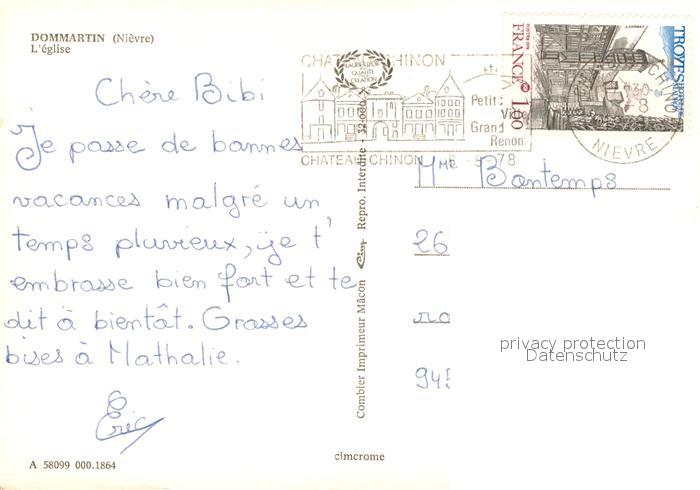 DOMMARTIN (Nièvre)
L'église
Chère Bibi
Je passe de bonnes
vacances malgré un
temps pluvieux, je t'
embrasse bien fort et te
dit à bientôt. Grosses
bises à Nathalie.
Eric
A 58099 000.1864
Combier Imprimeur Mâcon Cim Repro. Interdite - 32-069
cimcrome
CHATEAU CHINON
Petite
Ville
Grand
Renom
CHATEAU CHINON 8-78
TROYES
FRANCE 1,00
CHINON
-8
NIEVRE
Mme Bontemps
26
945
privacy protection
Datenschutz